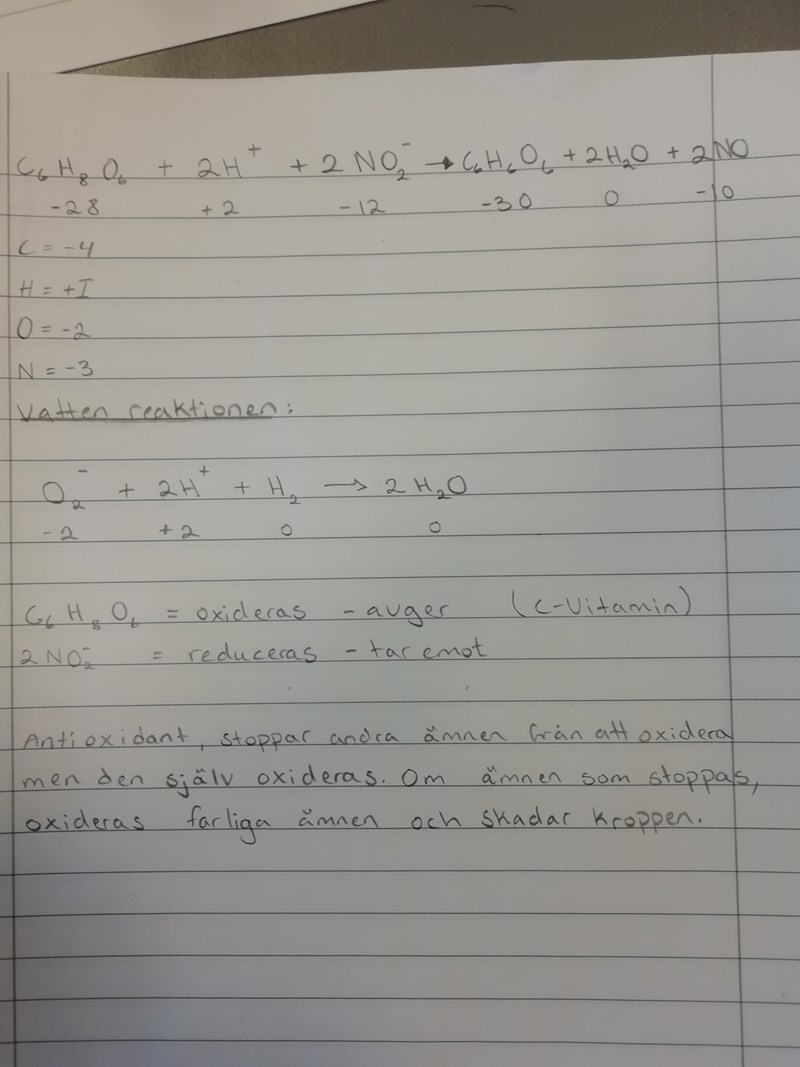 C₆H₈O₆ + 2H⁺ + 2NO₂⁻ → C₆H₆O₆ + 2H₂O + 2NO
-28 +2 -12 -30 0 -10
C = -4
H = +I
O = -2
N = -3
Vatten reaktionen:
O₂⁻ + 2H⁺ + H₂ → 2H₂O
-2 +2 0 0
C₆H₈O₆ = oxideras - avger (C-Vitamin)
2NO₂⁻ = reduceras - tar emot
Antioxidant, stoppar andra ämnen från att oxidera
men den själv oxideras. Om ämnen som stoppas,
oxideras farliga ämnen och skadar kroppen.